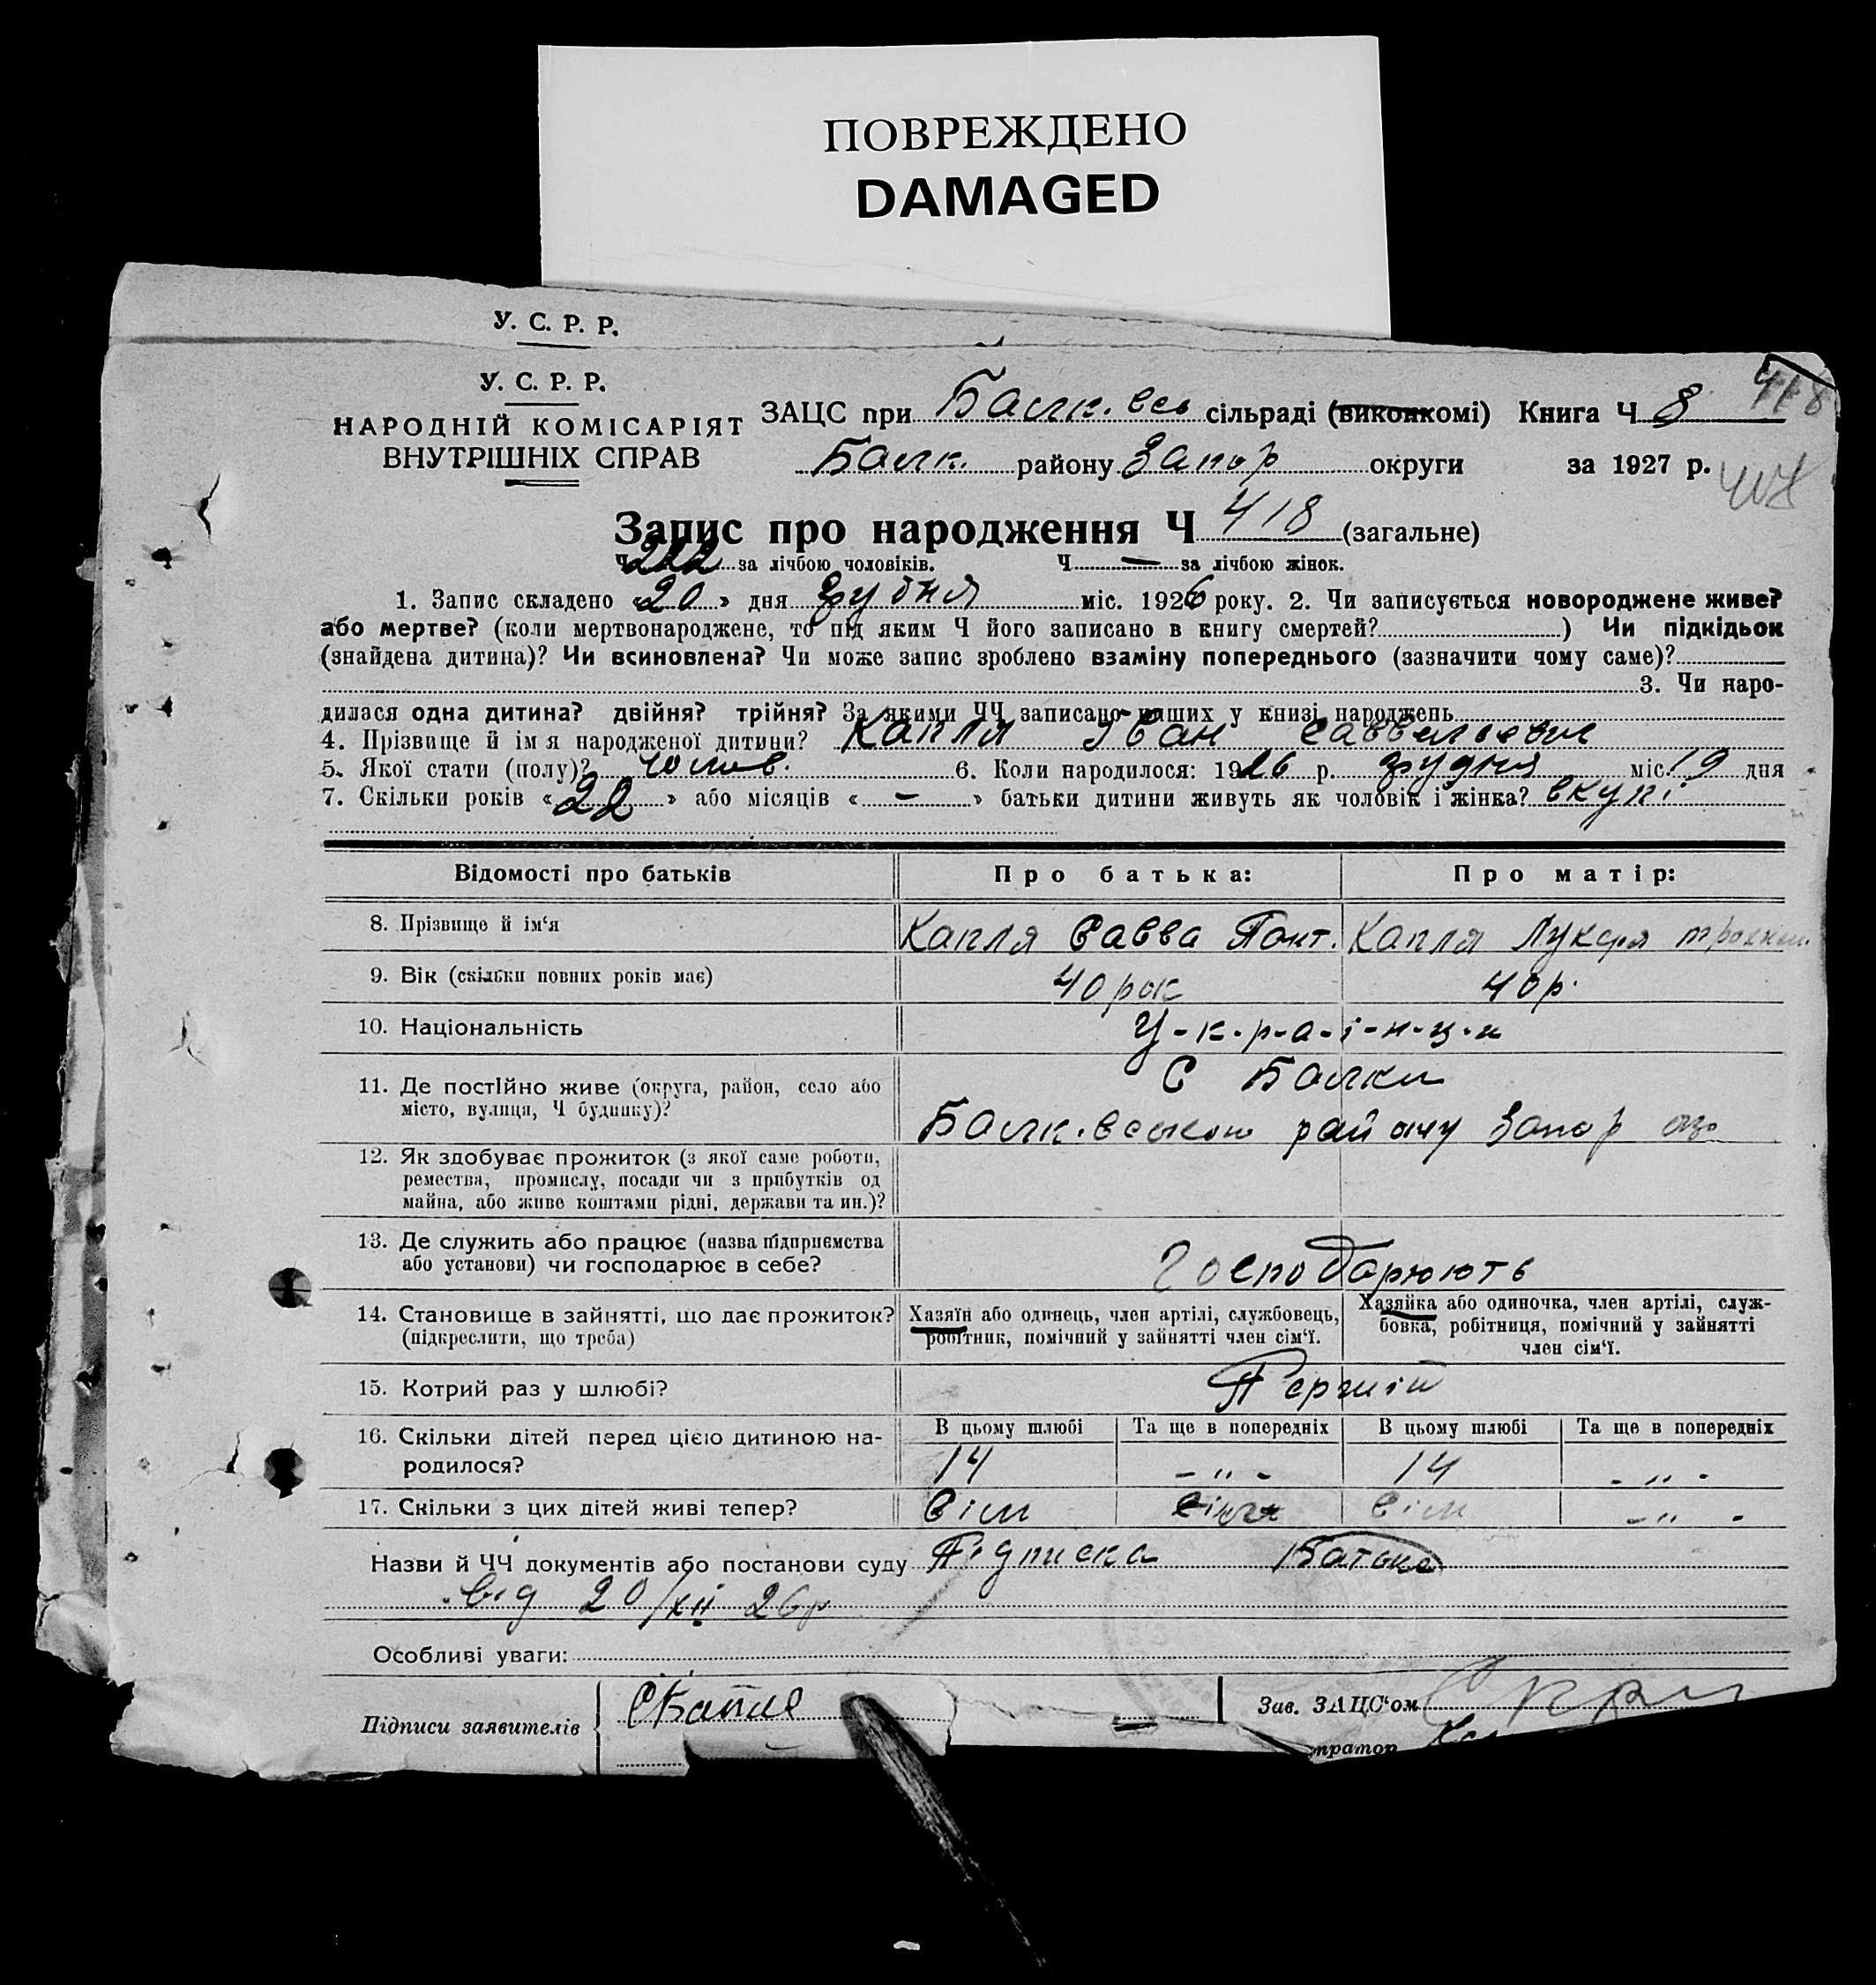 ПОВРЕЖДЕНО
DAMAGED
У. С. Р. Р.
У. С. Р. Р.
НАРОДНІЙ КОМІСАРІЯТ
ВНУТРІШНІХ СПРАВ
ЗАЦС при Балк. сільраді (виконкомі) Книга Ч 8 418
Балк. району Запор округи за 1927 р.
Запис про народження Ч 418 (загальне)
Ч 222 за лічбою чоловіків. Ч — за лічбою жінок.
1. Запис складено «20» дня грудня міс. 1926 року. 2. Чи записується новороджене живе?
або мертве? (коли мертвонароджене, то під яким Ч його записано в книгу смертей? ) Чи підкідьок
(знайдена дитина)? Чи всиновлена? Чи може запис зроблено взаміну попереднього (зазначити чому саме)?
3. Чи наро-
дилася одна дитина? двійня? трійня? За якими ЧЧ записано инших у книзі народжень
4. Прізвище й імя народженої дитини? Капля Іван Саввельевич
5. Якої стати (полу)? чолов. 6. Коли народилося: 1926 р. грудня міс. 19 дня
7. Скільки років «22» або місяців « — » батьки дитини живуть як чоловік і жінка? вкупі
Відомості про батьків Про батька: Про матір:
8. Прізвище й ім'я Капля Савва Пант. Капля Лукеря
9. Вік (скільки повних років має) 40 рок 40 р.
10. Національність У-к-р-а-ї-н-ц-и
11. Де постійно живе (округа, район, село або
місто, вулиця, Ч будинку)?
С Балки
Балк. району Запор
12. Як здобуває прожиток (з якої саме роботи,
ремества, промислу, посади чи з прибутків од
майна, або живе коштами рідні, держави та ин.)?
13. Де служить або працює (назва підприємства
або установи) чи господарює в себе?
Господарюють
14. Становище в зайнятті, що дає прожиток?
(підкреслити, що треба)
Хазяїн або одинець, член артілі, службовець,
робітник, помічний у зайнятті член сім'ї.
Хазяйка або одиночка, член артілі, служ-
бовка, робітниця, помічний у зайнятті
член сім'ї.
15. Котрий раз у шлюбі? Перший
16. Скільки дітей перед цією дитиною на-
родилося?
В цьому шлюбі Та ще в попередніх В цьому шлюбі Та ще в попередніх
14 - " - 14 - " -
17. Скільки з цих дітей живі тепер? Вісм Вісм - " -
Назви й ЧЧ документів або постанови суду Підписка Батька
від 20/XII 26 р
Особливі уваги:
Підписи заявителів СКапля
Зав. ЗАЦС'ом
тратор